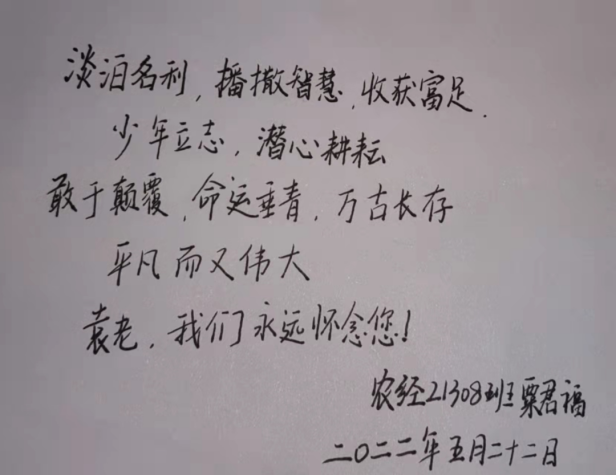 淡泊名利,播撒智慧,收获富足.
少年立志,潜心耕耘
敢于颠覆,命运垂青,万古长存
平凡而又伟大
袁老,我们永远怀念您!
农经21308班粟君福
二〇二二年五月二十二日